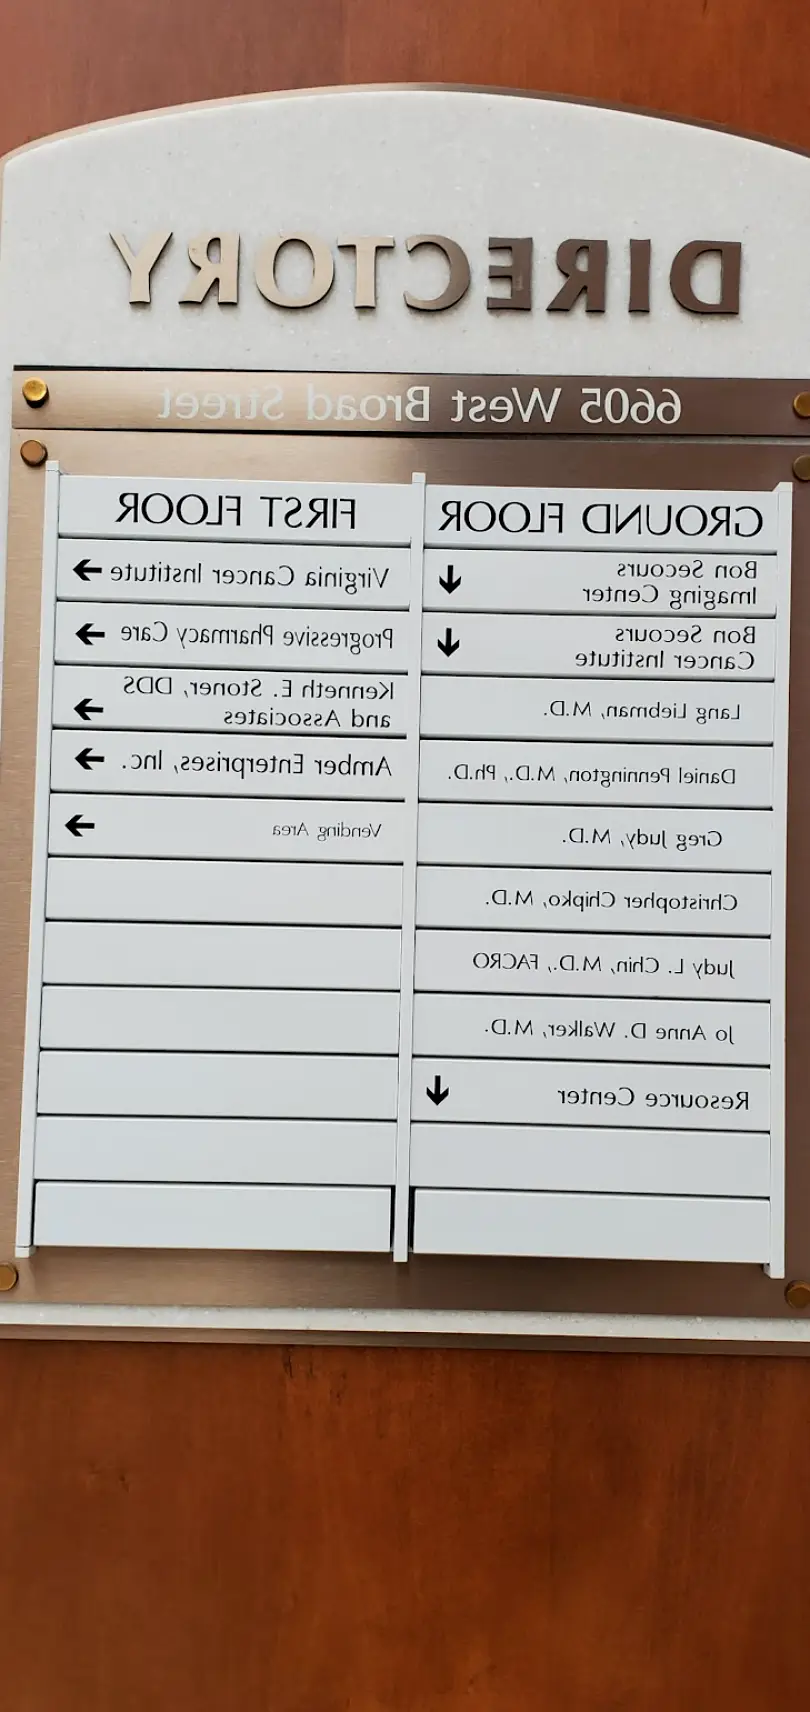 DIRECTORY
6605 West Broad Street
GROUND FLOOR
Bon Secours
Imaging Center
Bon Secours
Cancer Institute
Lang Liebman, M.D.
Daniel Pennington, M.D., Ph.D.
Greg Judy, M.D.
Christopher Chipko, M.D.
Judy L. Chin, M.D., FACRO
Jo Anne D. Walker, M.D.
Resource Center
FIRST FLOOR
Virginia Cancer Institute
Progressive Pharmacy Care
Kenneth E. Stoner, DDS
and Associates
Amber Enterprises, Inc.
Vending Area